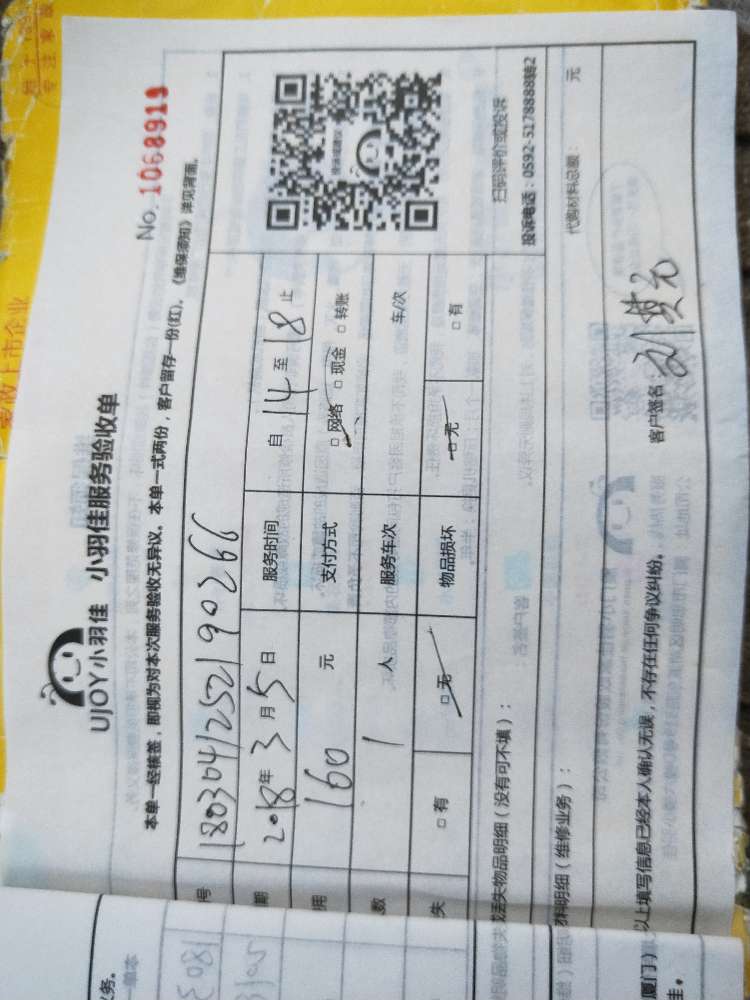 No. 1068919
UJOY小羽佳 小羽佳服务验收单
本单一经核签，即视为对本次服务验收无异议。本单一式两份，客户留存一份(红)。《维保须知》详见背面。
号 180304125219026 6
期 2018年3月5日 服务时间 自14至18止
用 160 元 支付方式 □网络 □现金 □转账
数 1 人 服务车次 车/次
失 □有 □无 物品损坏 □无 □有
扫码评价或投诉
投诉电话：0592-5178888转2
丢失物品明细（没有可不填）：
材料明细（维修业务）： 代购材料总额： 元
以上填写信息已经本人确认无误，不存在任何争议纠纷。 客户签名：刘黄元
厦门）
佳。
务。
一单本
专注家政
家政上市企业